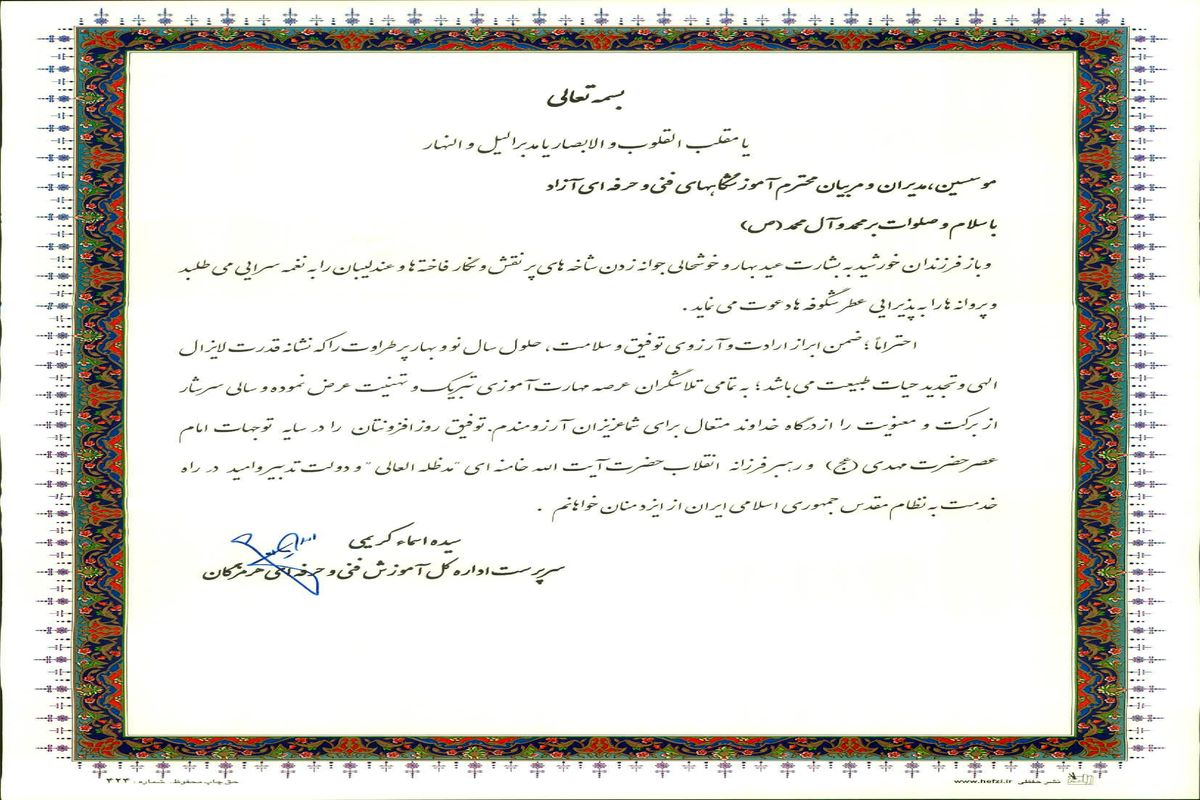 بسمه تعالی
یا مقلب القلوب و الابصار یا مدبر الیل و النهار
موسسین، مدیران و مربیان محترم آموزشگاههای فنی و حرفه ای آزاد
با سلام و صلوات بر محمد و آل محمد (ص)
و باز فرزندان خورشید به بشارت عید بهار و خوشحالی جوانه زدن شاخه های پر نقش و نگار فاخته ها و عندلیبان را به نغمه سرایی می طلبد
و پروانه ها را به پذیرایی عطر شگوفه ها دعوت می نماید .
احتراماً ؛ ضمن ابراز ارادت و آرزوی توفیق و سلامت ، حلول سال نو و بهار پر طراوت را که نشانه قدرت لایزال
الهی و تجدید حیات طبیعت می باشد ؛ به تمامی تلاشگران عرصه مهارت آموزی تبریک و تهنیت عرض نموده و سالی سرشار
از برکت و معنویت را از درگاه خداوند متعال برای شما عزیزان آرزومندم. توفیق روز افزونتان را در سایه توجهات امام
عصر حضرت مهدی (عج) و رهبر فرزانه انقلاب حضرت آیت الله خامنه ای "مدظله العالی" و دولت تدبیر و امید در راه
خدمت به نظام مقدس جمهوری اسلامی ایران از ایزد منان خواهانم .
سیده اسماء کریمی
سرپرست اداره کل آموزش فنی و حرفه ای هرمزگان
نشر حفظی www.hefzi.ir
حق چاپ محفوظ. شماره: ۳۲۳